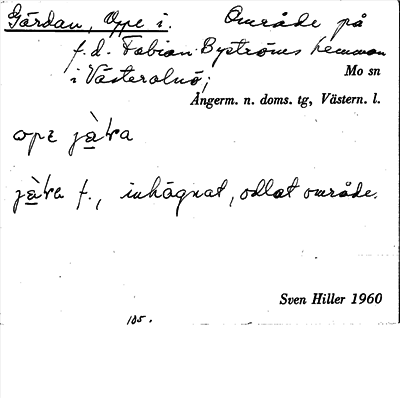 Gärdan, Oppe i. Område på
f.d. Fabian Byströms hemman
i Västerolnö;
Mo sn
Ångerm. n. doms. tg, Västern. l.
ope
f., inhägnat, odlat område.
Sven Hiller 1960
105.